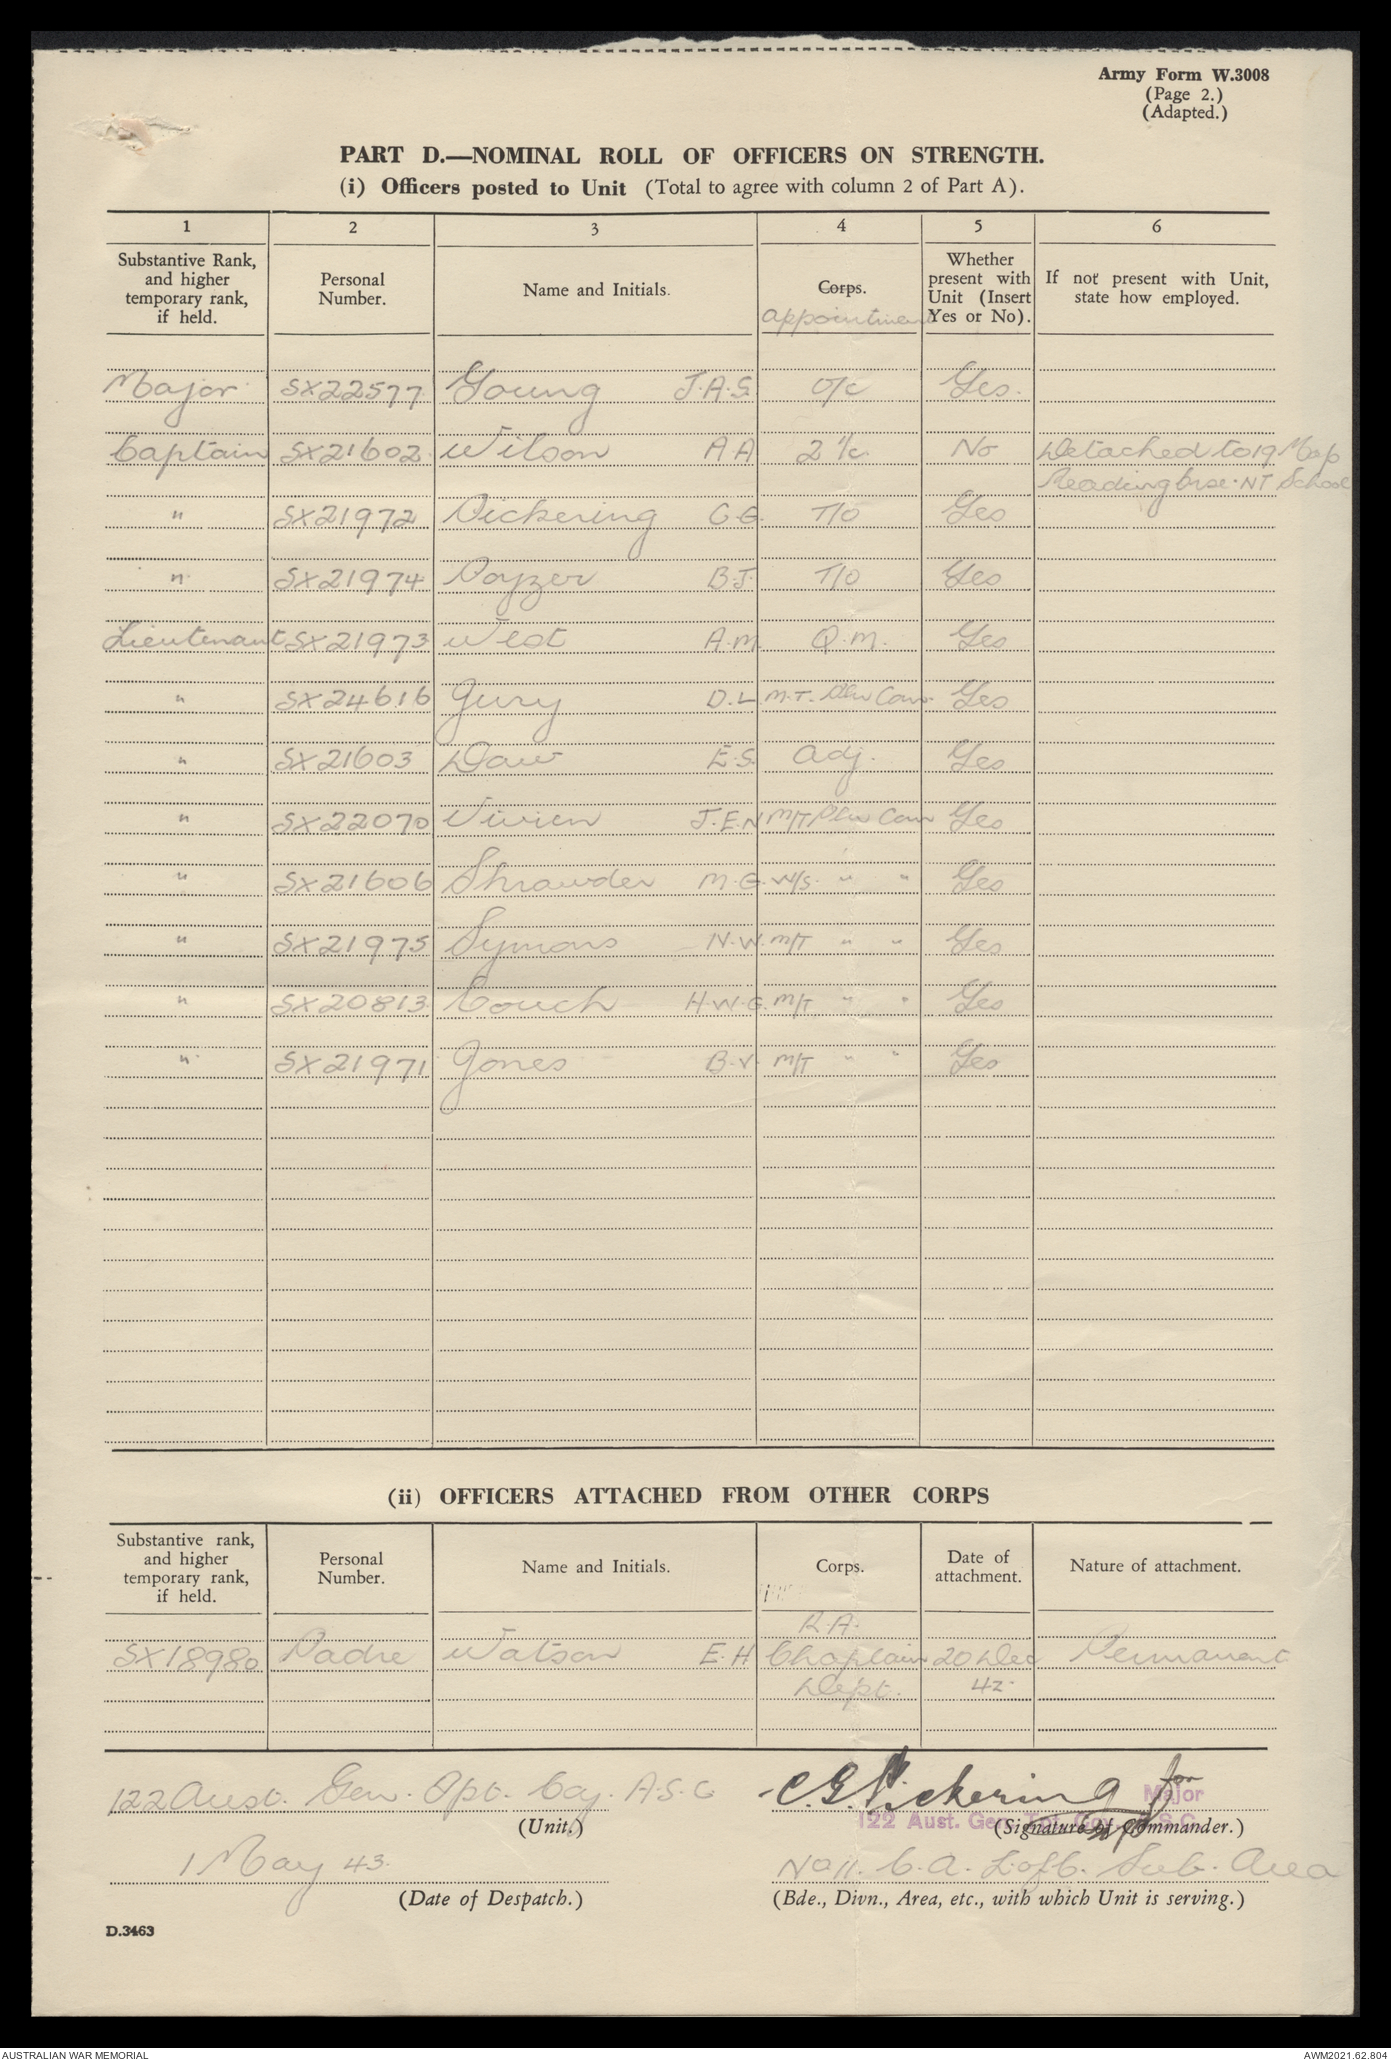 Army Form W.3008
(Page 2.)
(Adapted.)
PART D.—NOMINAL ROLL OF OFFICERS ON STRENGTH.
(i) Officers posted to Unit (Total to agree with column 2 of Part A).
1 2 3 4 5 6
Substantive Rank, and higher temporary rank, if held.
Personal Number.
Name and Initials.
Corps.
appointment
Whether present with Unit (Insert Yes or No).
If not present with Unit, state how employed.
Major SX22577 Young J.A.S. O/C Yes.
Captain SX21602 Wilson A A 2 I/c No Detached to 19 Map
Reading NT School
" SX21972 Pickering C G. T/O Yes
" SX21974 Poyzer B.J. T/O Yes
Lieutenant SX21973 West A.M. Q.M. Yes
" SX24616 Jury D.L. M.T. Pln Com Yes
" SX21603 Daw E.S. Adj. Yes
" SX22070 Vivien J.E.N M/T Pln Com Yes
" SX21606 Shrowder M.G. W/S. " " Yes
" SX21975 Symons N.W. M/T " " Yes
" SX20813 Couch H.W.G. M/T " " Yes
" SX21971 Jones B.V. M/T " " Yes
(ii) OFFICERS ATTACHED FROM OTHER CORPS
Substantive rank, and higher temporary rank, if held.
Personal Number.
Name and Initials.
Corps.
Date of attachment.
Nature of attachment.
R.A.
SX18980 Padre Watson E.H Chaplain 20 Dec Permanent
Dept. 42.
122 Aust. Gen. Tpt. Coy. A.S.C C.G. Pickering for
Major
122 Aust. Gen. Tpt. Coy. A.S.C.
(Unit.) (Signature of Commander.)
1 May 43. No 11. C.A. L of C. Sub. Area
(Date of Despatch.) (Bde., Divn., Area, etc., with which Unit is serving.)
D.3463
AUSTRALIAN WAR MEMORIAL AWM2021.62.804